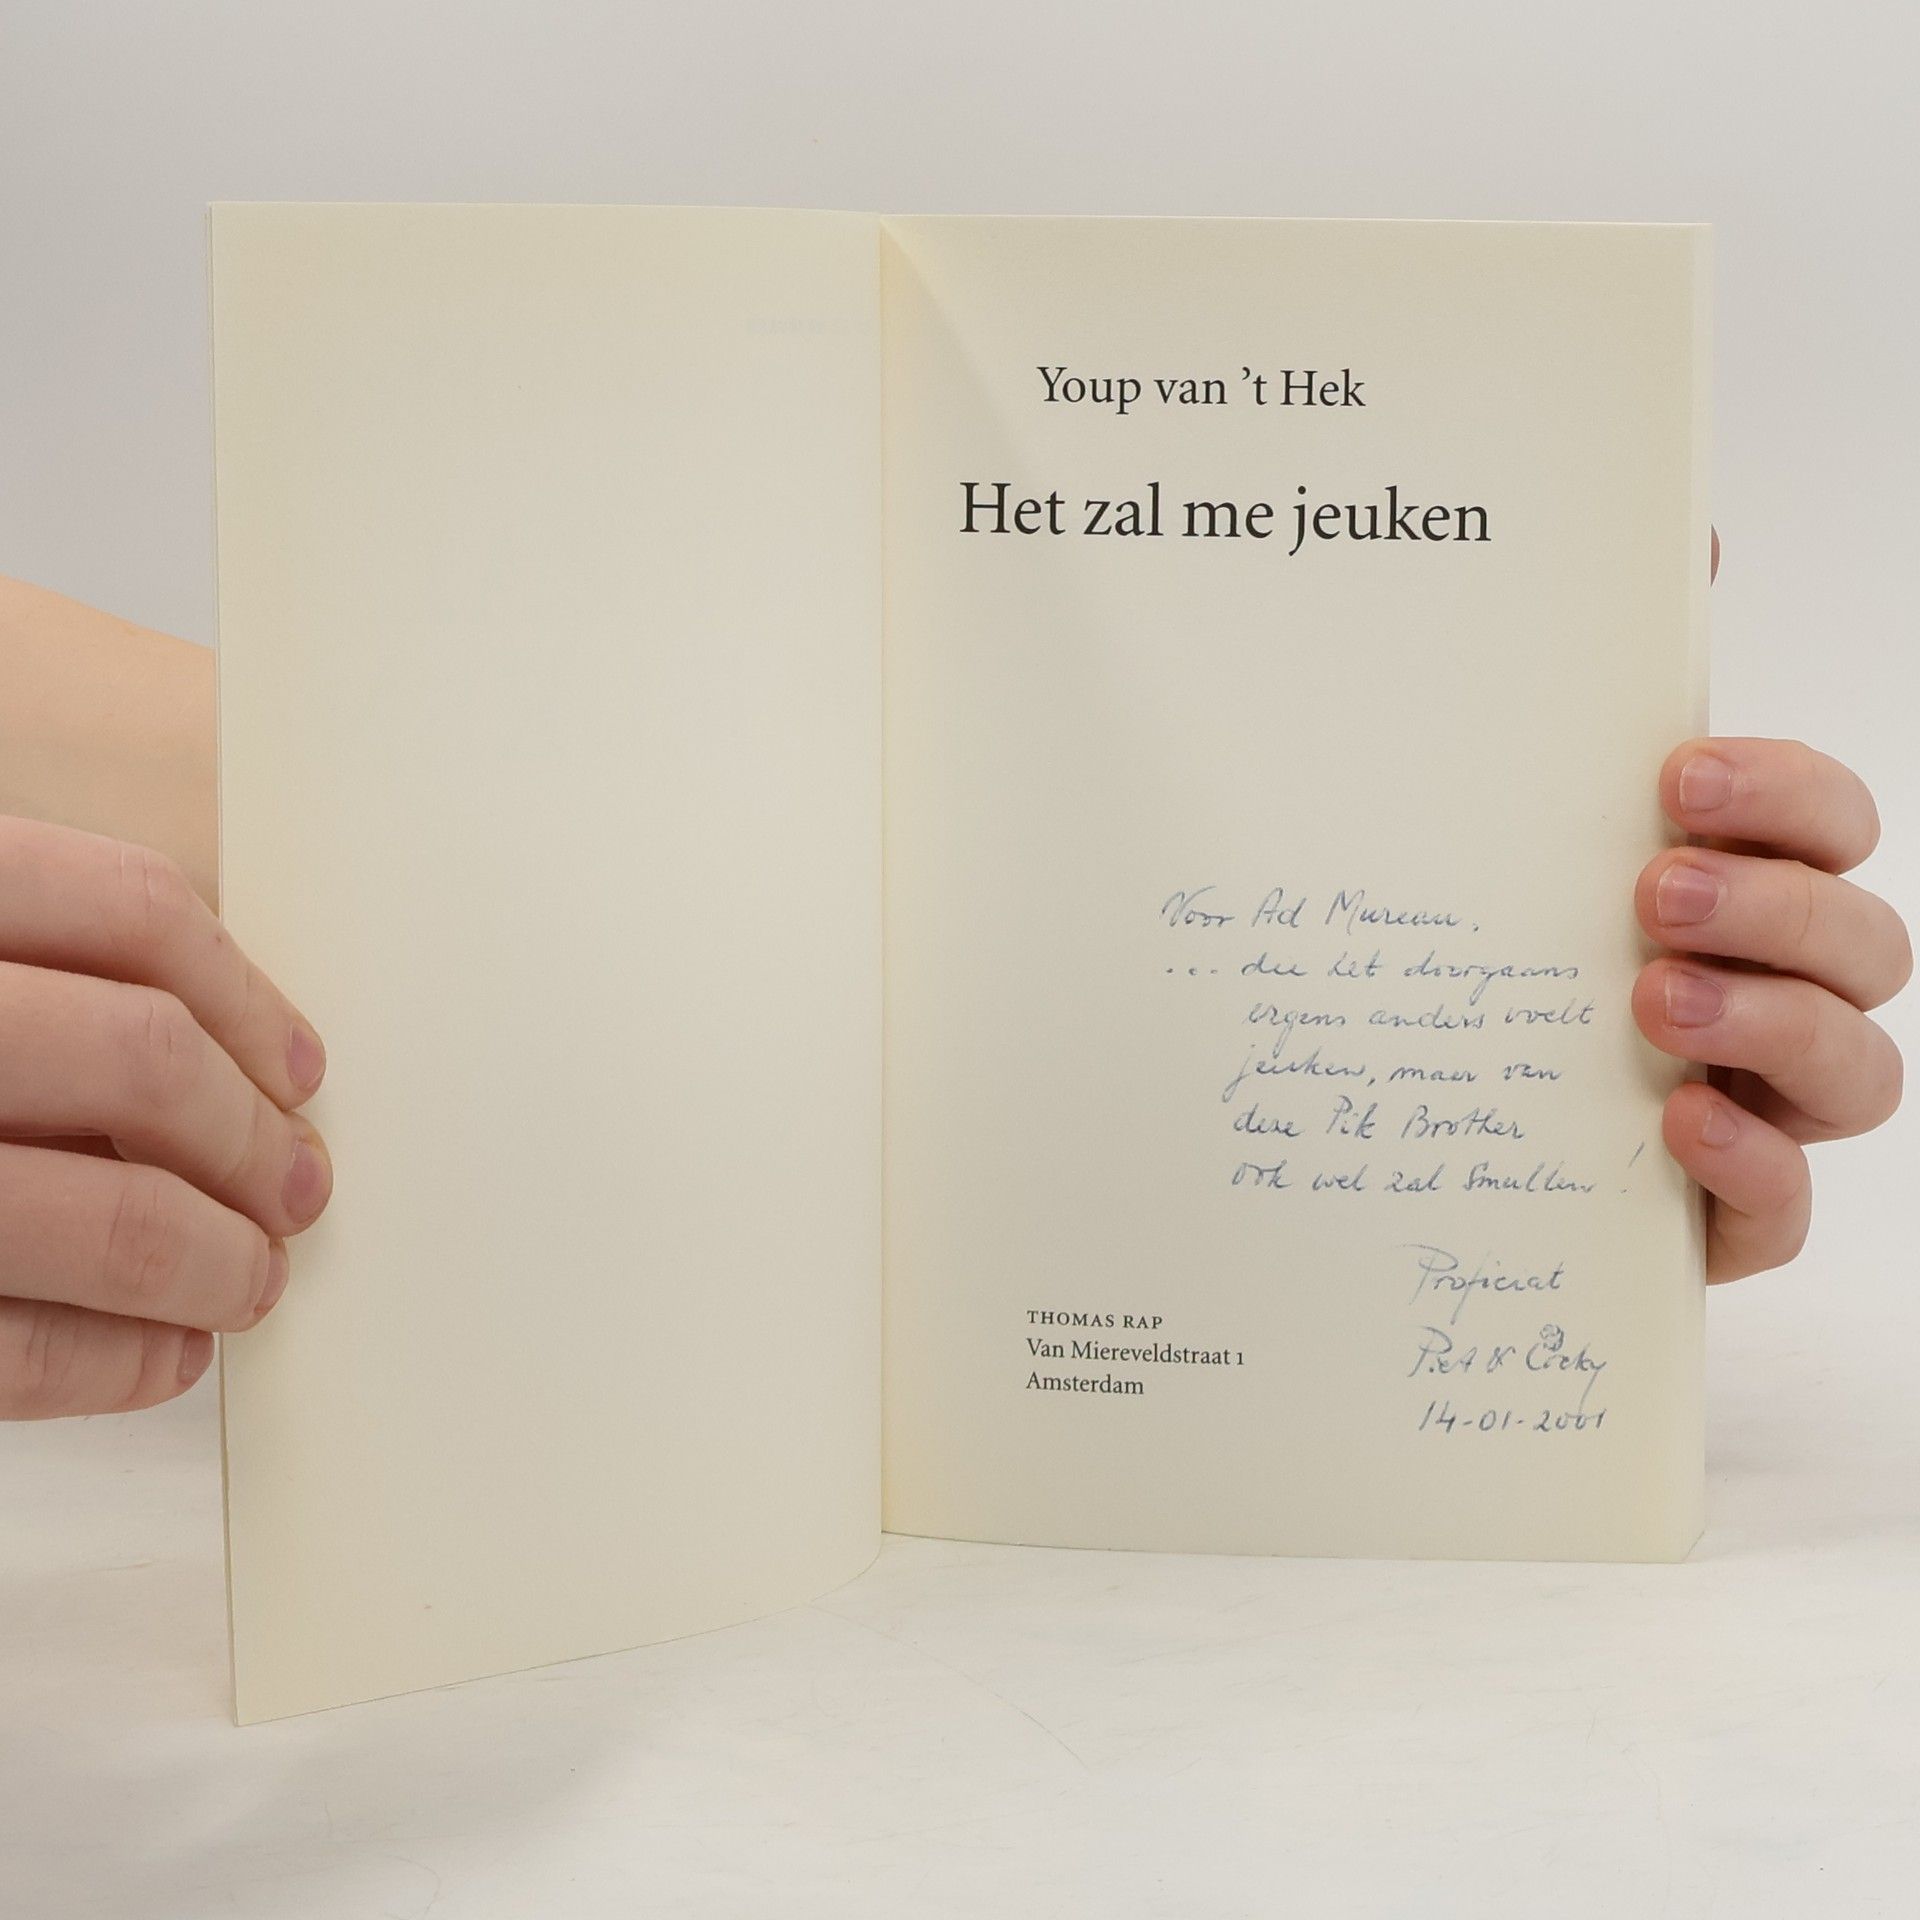 Youp van ’t Hek
Het zal me jeuken
Voor Ad Mureau.
... die het doorgaans
ergens anders voelt
jeuken, maar van
deze Pik Brother
ook wel zal smullen!
Proficiat
Piet & Cocky
14-01-2001
THOMAS RAP
Van Miereveldstraat 1
Amsterdam